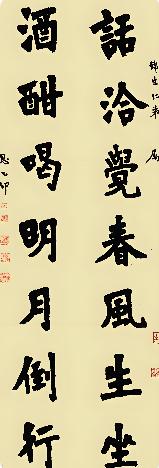 話洽覺春風生坐
酒酣喝明月倒行